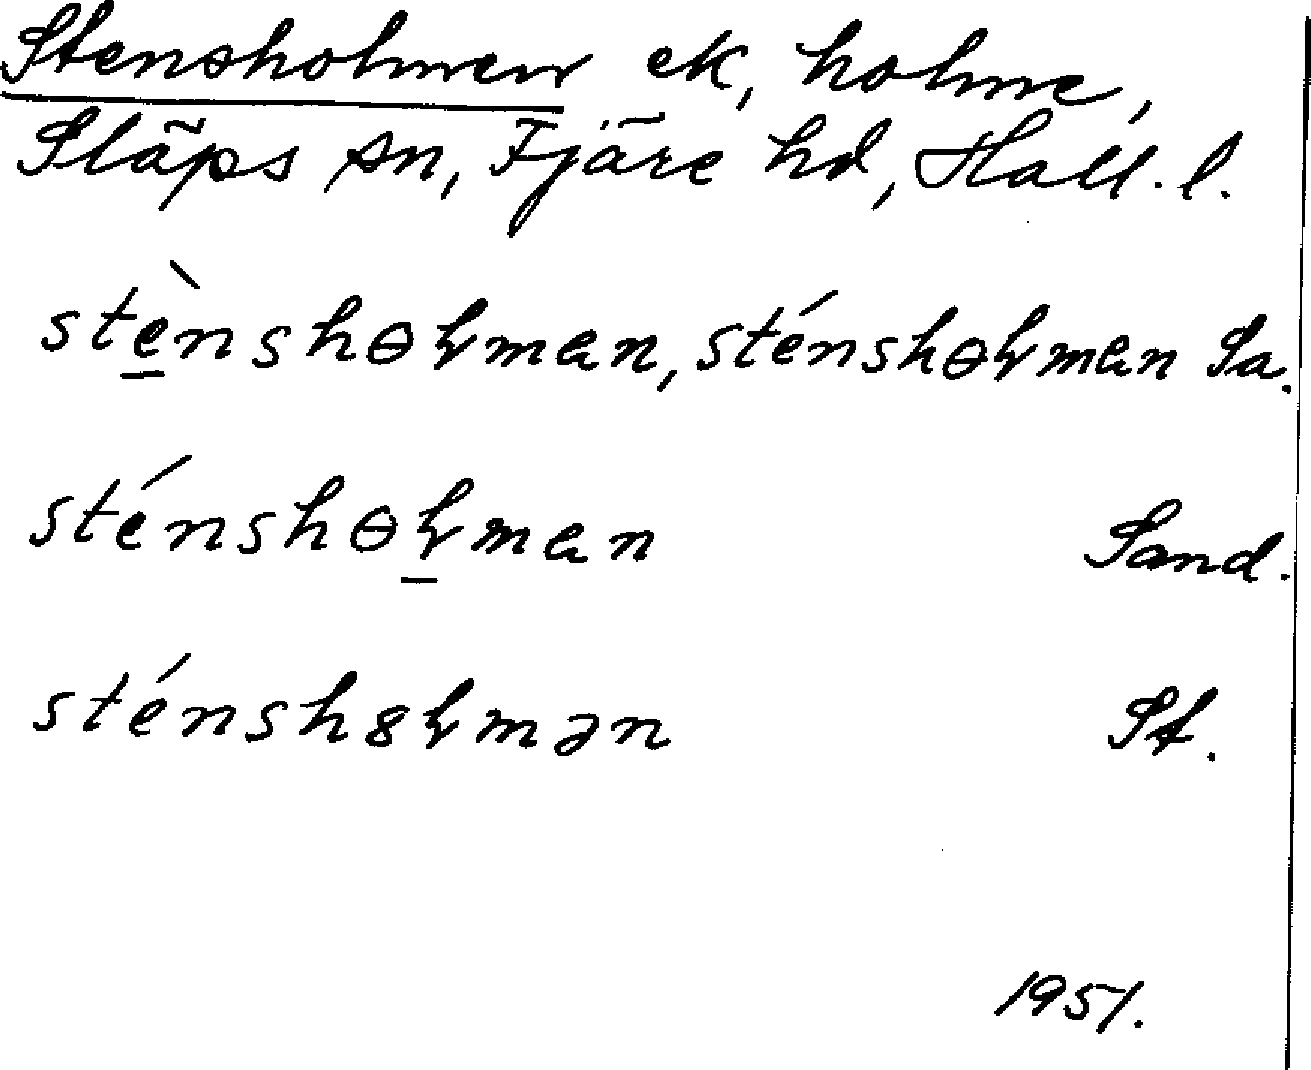 Stensholmen ek, holme,
Släps sn, Fjäre hd, Hall. l.
stè̱nshɵɫman, sténshɵɫman Sa.
sténshɵɫ̱man Sand.
sténsh8ɫmən St.
1951.